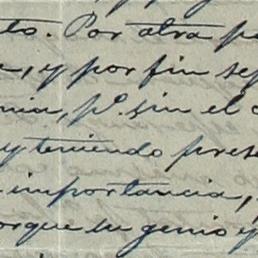 to. Por otra p
, y por fin se
nia, pº. sin el
y teniendo prese
importancia,
orque su genio y